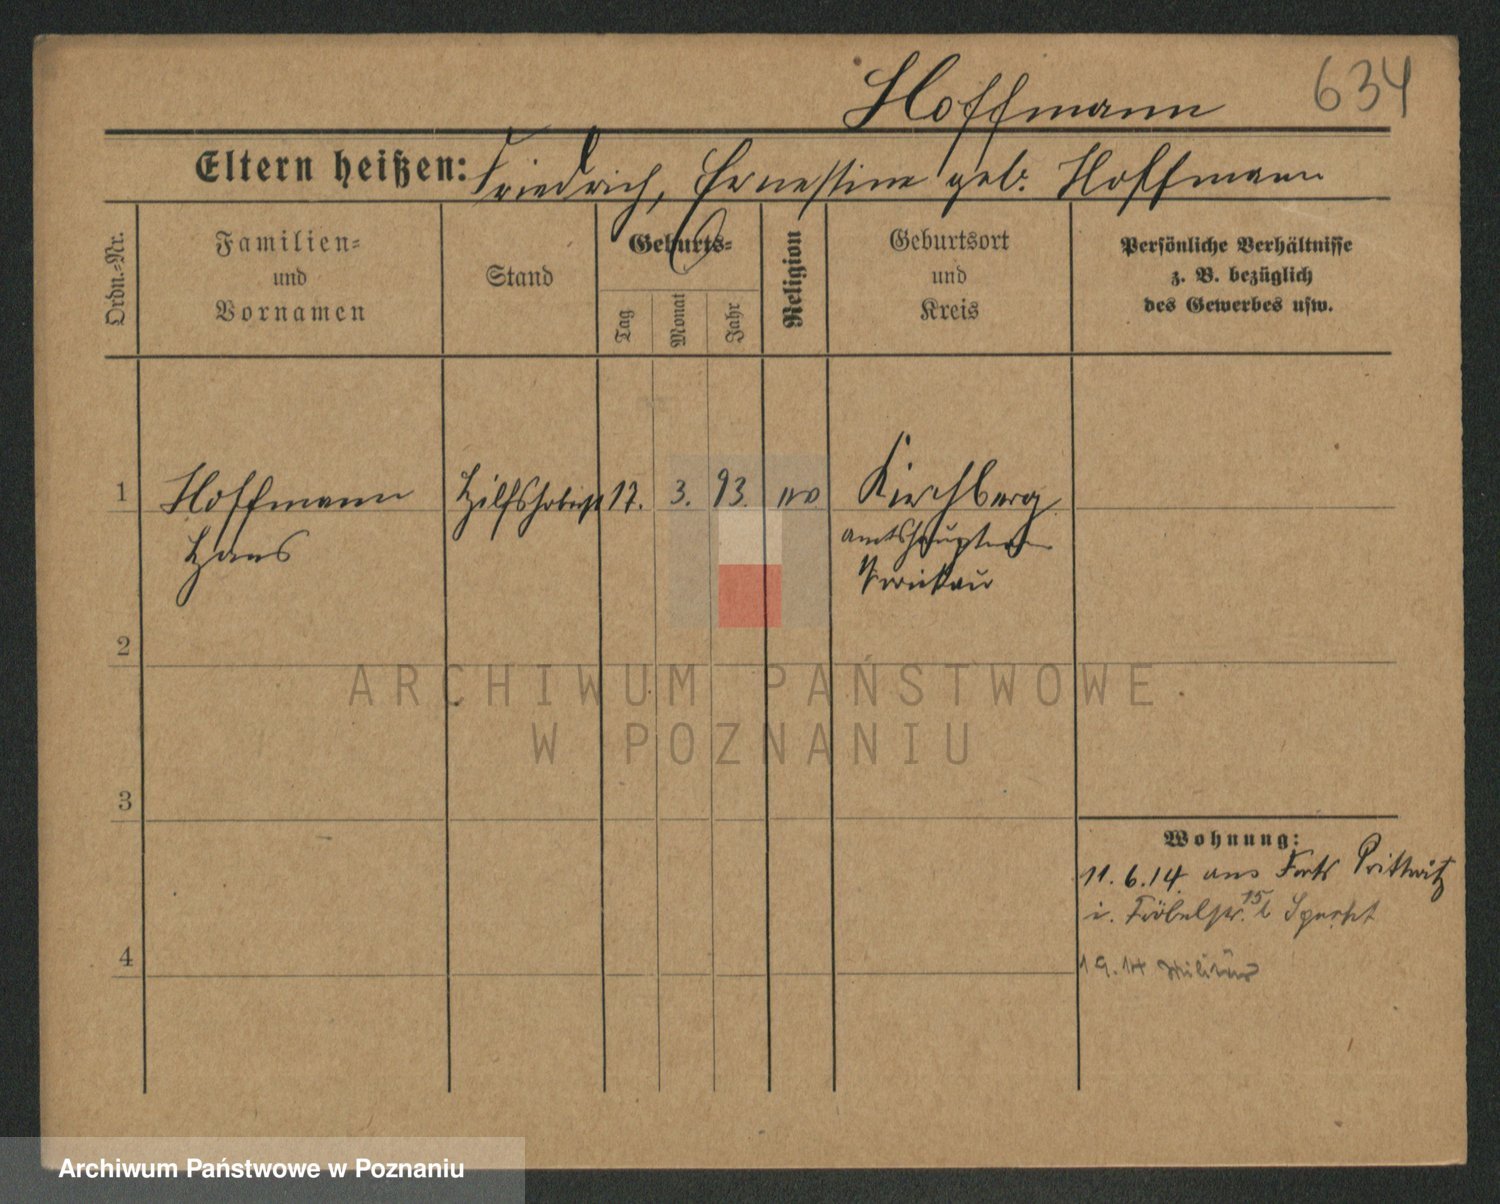 Hoffmann 634
Eltern heißen: Friedrich, Ernestine geb. Hoffmann
Ordn.=Nr.
Familien=
und
Vornamen
Stand
Geburts=
Tag
Monat
Jahr
Religion
Geburtsort
und
Kreis
Persönliche Verhältnisse
z. B. bezüglich
des Gewerbes usw.
1 Hoffmann Hilfshoboist 17. 3. 93. ev Kirchberg
Hans
Amtshauptm
Zwickau
2
ARCHIWUM PAŃSTWOWE
W POZNANIU
3
Wohnung:
11.6.14. aus Forts Prittwitz
i. Fröbelstr. 15 b Specht
4
1 9. 14 Militär
Archiwum Państwowe w Poznaniu